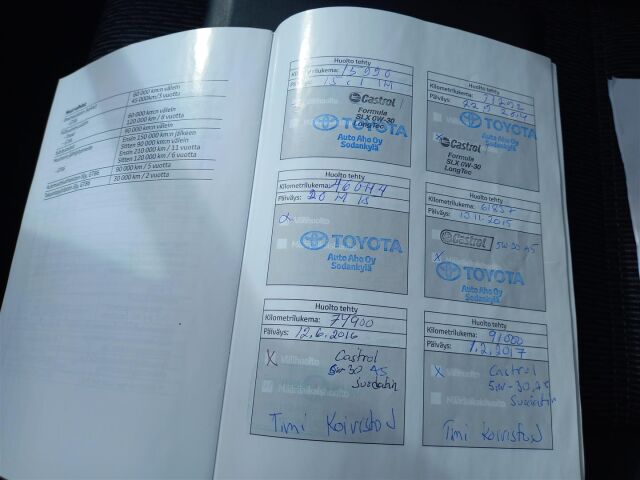 90 000 km:n välein
45 000km/3 vuotta
60 000 km:n välein
120 000 km / 8 vuotta
90 000 km:n välein
Ensin 150 000 km:n jälkeen
Sitten 90 000 km:n välein
Ensin 210 000 km / 11 vuotta
Sitten 120 000 km / 6 vuotta
90 000 km / 5 vuotta
30 000 km / 2 vuotta
Huolto tehty
Kilometrilukema:
Päiväys:
Castrol
Formula
SLX 0W-30
LongTec
TOYOTA
Auto Aho Oy
Sodankylä
Huolto tehty
Kilometrilukema:
Päiväys: 22 9 2014
TOYOTA
X Castrol
Formula
SLX 0W-30
LongTec
Huolto tehty
Kilometrilukema:
Päiväys:
TOYOTA
Auto Aho Oy
Sodankylä
Huolto tehty
Kilometrilukema: 61857
Päiväys: 13.11.2015
Castrol 5W-30 A5
X TOYOTA
Auto Aho Oy
Sodankylä
Huolto tehty
Kilometrilukema: 74900
Päiväys: 12.6.2016
X Välihuolto Castrol
5W-30 A5
Suodatin
Määräaikaishuolto
Timi Koivisto
Huolto tehty
Kilometrilukema: 91000
Päiväys: 1.2.2017
X Castrol
5W-30, A5
Suodatin
Timi Koivisto